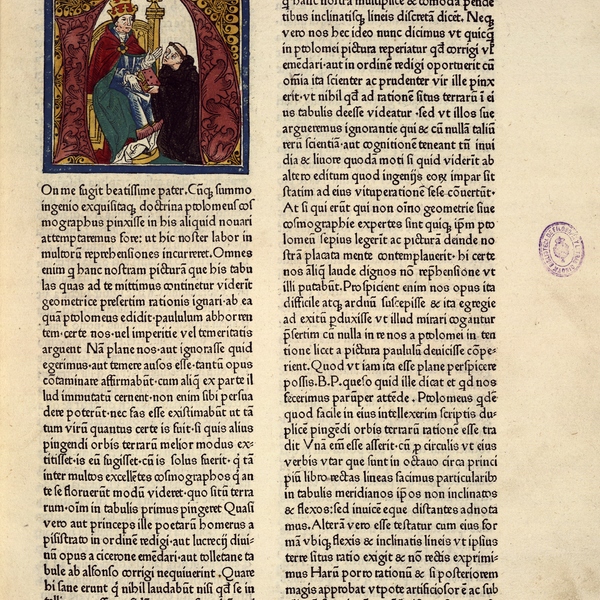 On me fugit beatissime pater. Cũq; summo
ingenio exquisitaq; doctrina ptolomeus cos
mographus pinxisse in his aliquid nouari
attemptaremus fore: ut hic noster labor in
multorũ reprehensiones incurreret. Omnes
enim q̃ hanc nostram picturã que his tabu
las quas ad te mittimus continetur viderĩt
geometrice presertim rationis ignari ab ea
quã ptolomeus edidit paululum abhorren
tem certe nos uel imperitie vel temeritatis
arguent Nã plane nos aut ignorasse quid
egerimus aut temere ausos esse tantũ opus
cõtaminare affirmabũt cum aliq̃ ex parte il
lud immutatũ cernent non enim sibi persua
dere poterũt nec fas esse existimabũt ut tã
tum virũ quantus certe is fuit si quis alius
pingendi orbis terrarũ melior modus ex
titisset is eũ fugisset cũ is solus fuerit q̃ tã
inter multos excellẽtes cosmographos q̃ an
te se floruerũt modũ videret quo sitũ terra
rum oĩm in tabulis primus pingeret Quasi
vero aut princeps ille poetarũ homerus a
pisistrato in ordinẽ redigi aut lucrecij diui
nũ opus a cicerone emẽdari aut tolletane ta
bule ab alfonso corrigi nequiuerint. Quare
hi sane erunt q̃ nihil laudabũt nisi qd̃ se in
q̃ hanc nostra multiplice & cõmoda pende
tibus inclinatisq; lineis discretã dicẽt. Neq;
vero nos hec ideo nunc dicimus vt quicq̃
in ptolomei pictura reperiatur qd̃ corrigi vl'
emẽdari aut in ordinẽ redigi oportuerit cũ
omĩa ita scienter ac prudenter vir ille pinx
erit vt nihil qd̃ ad rationẽ situs terrarũ ĩ ei
us tabulis deesse videatur sed vt illos sue
argueremus ignorantie qui & cũ nullã taliũ
rerũ scientiã aut cognitionẽ teneant tñ inui
dia & liuore quodã moti si quid viderĩt ab
altero editum quod ingenijs eorũ impar sit
statim ad eius vituperationẽ sese cõuertũt
At si qui erũt qui non oĩno geometrie siue
cosmographie expertes sint quiq; ip̃m pto
lomeũ sepius legerĩt ac picturã deinde no
strã placata mente contemplauerit hi certe
nos alĩq̃ laude dignos nõ rep̃hensione vt
illi putabũt. Prospicient enim nos opus ita
difficile atq; arduũ suscepisse & ita egregie
ad exitũ p̃duxisse vt illud mirari cogantur
p̃sertim cũ nulla in re nos a ptolomei in ten
tione licet a pictura paululũ deuicisse cõpe
rient. Quod vt iam ita esse plane perspicere
possis. B.P. queso quid ille dicat et qd̃ nos
fecerimus parũper attẽde. Ptolomeus qd̃e
quod facile in eius intellexerim scriptis du
plicẽ pingẽdi orbis terrarũ rationẽ esse tra
dit Vnã em̃ esse asserit cũ p̃ circulis vt eius
verbis vtar que sunt in octauo circa princi
piũ libro rectas lineas facimus particularib;
in tabulis meridianos ip̃os non inclinatos
& flexos: sed inuicẽ eque distantes adnota
mus. Alterã vero esse testatur cum eius for
mã vbiq; flexis & inclinatis lineis vt ipsius
terre situs ratio exigit & nõ rectis exprimi
mus Harũ porro rationũ & si posteriorem
magis approbat vtpote artificiosior ẽ ac sub